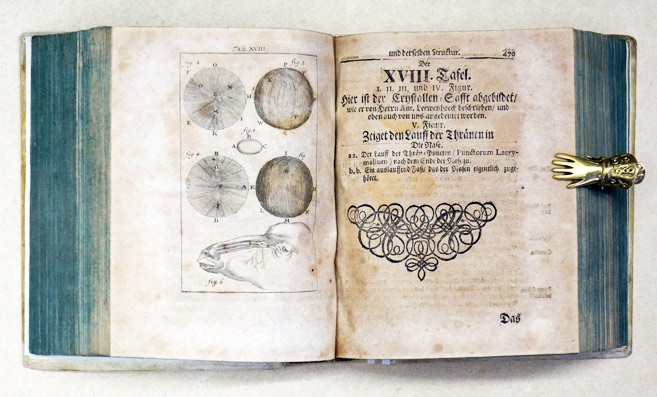 Tab. XVIII.
fig. 1
fig. 2
fig. 3
fig. 4
fig
fig. 6
und derselben Structur.
479
Der
XVIII. Tafel.
I. II. III. und IV. Figur.
Hier ist der Crystallen-Safft abgebildet/
wie er von Herrn Ant. Leewenhoeck beschrieben/ und
oben auch von uns angedeutet worden.
V. Figur.
Zeiget den Lauff der Thränen in
Die Nase.
a a. Der Lauff der Thrän-Puncten (Punctorum Lacry-
malium) nach dem Ende der Nase zu.
b. b. Ein auslauffend das der Nasen eigentlich zuge-
höret.
Das